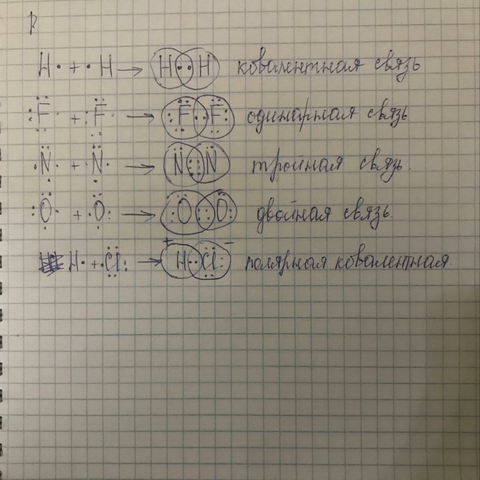 H· + ·H → H:H ковалентная связь
:F̈· + ·F̈: → :F̈··F̈: одинарная связь
·N̈· + ·N̈· → N⋮⋮N тройная связь.
:Ö· + ·Ö: → :Ö::Ö: двойная связь.
H· + ·C̈l: → H⁺··C̈l:⁻ полярная ковалентная